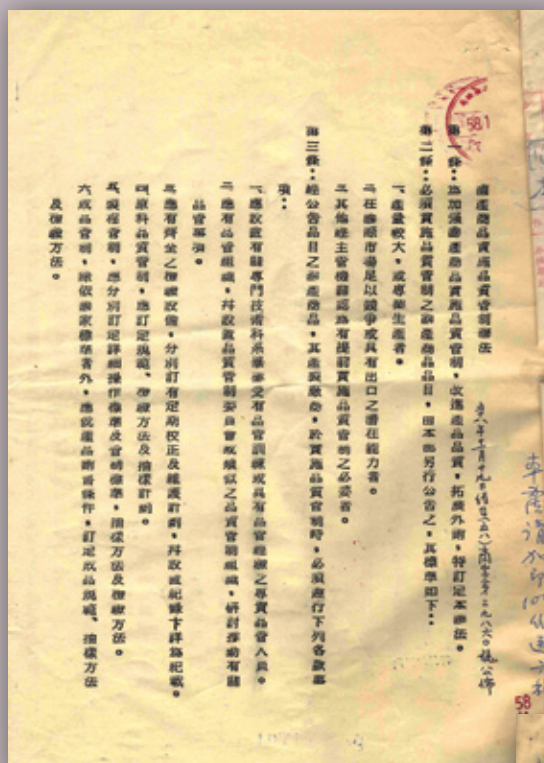 國產商品實施品質管制辦法
第一條：為加強國產商品實施品質管制，改進產品品質，拓展外銷，特訂定本辦法。
第二條：必須實施品質管制之國產商品品目，由本部另行公告之，其標準如下：
一、產量較大，或專業生產者。
二、在國際市場足以競爭或具有出口之潛在能力者。
三、其他經主管機關認為有提前實施品質管制之必要者。
第三條：經公告品目之國產商品，其產製廠商，於實施品質管制時，必須遵行下列各款事
項：
一、應設置有關專門技術科系畢業受有品管訓練或具有品管經驗之專責品管人員。
二、應有品管組織，并設置品質管制委員會或類似之品質管制組織，研討推動有關
品管事項。
三、應有齊全之檢驗設備，分別訂有定期校正及維護計劃，并設置紀錄卡詳為紀載。
四、原料品質管制，應訂定規範、檢驗方法及抽樣計劃。
五、製程管制，應分別訂定詳細操作標準及管制標準，抽樣方法及檢驗方法。
六、成品管制，除依國家標準者外，應就產品銷售條件，訂定成品規範、抽樣方法
及檢驗方法。
581
58